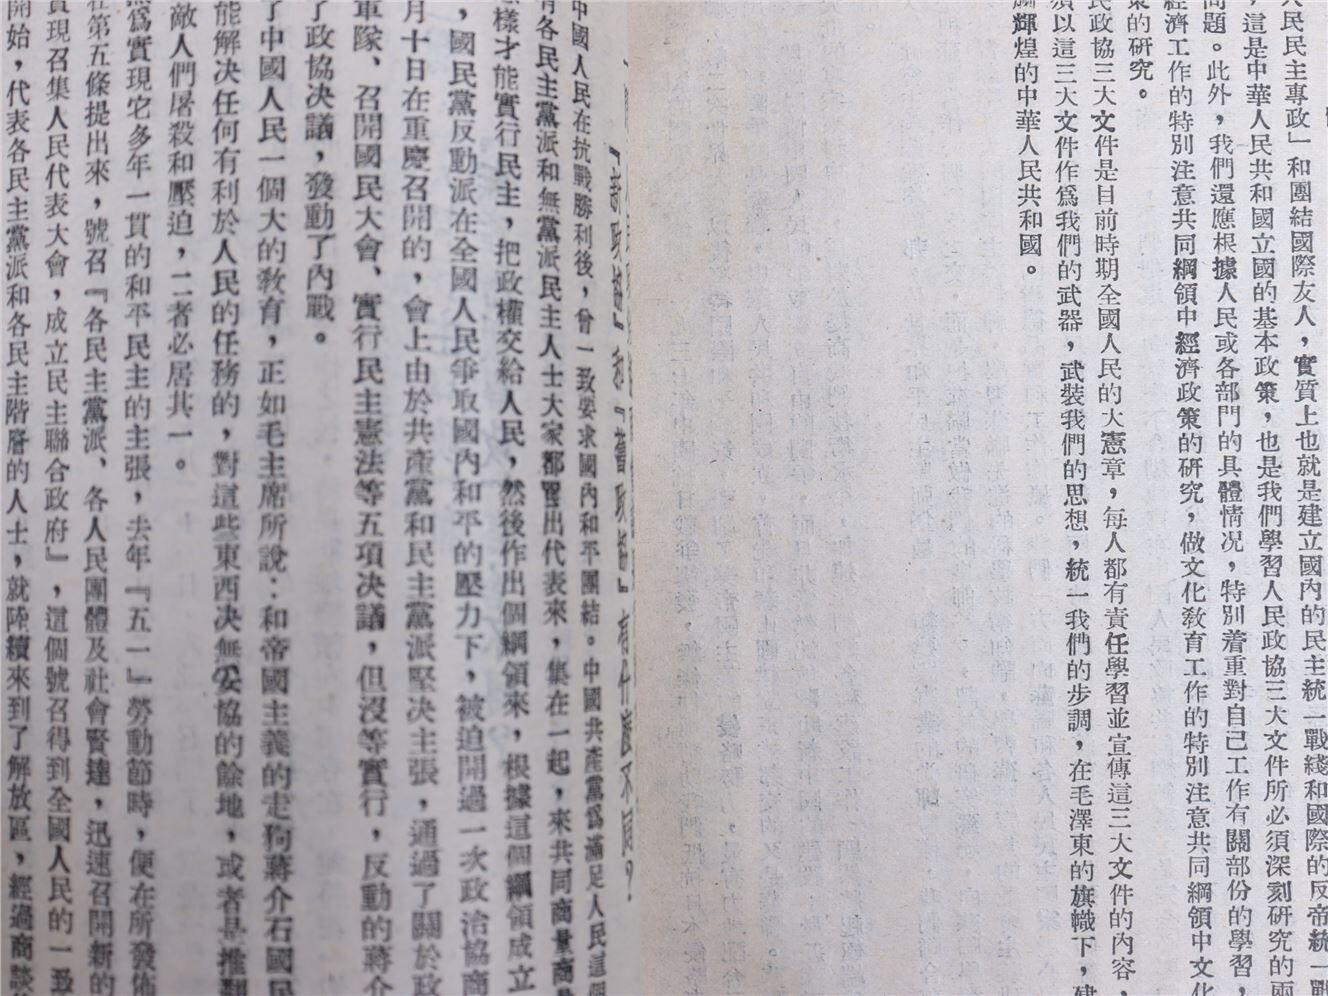 人民民主專政」和團結國際友人，實質上也就是建立國內的民主統一戰綫和國際的反帝統一戰
，這是中華人民共和國立國的基本政策，也是我們學習人民政協三大文件所必須深刻研究的兩
問題。此外，我們還應根據人民或各部門的具體情况，特別着重對自己工作有關部份的學習，
經濟工作的特別注意共同綱領中經濟政策的研究，做文化敎育工作的特別注意共同綱領中文化
策的研究。
民政協三大文件是目前時期全國人民的大憲章，每人都有責任學習並宣傳這三大文件的內容，
須以這三大文件作爲我們的武器，武裝我們的思想，統一我們的步調，在毛澤東的旗幟下，建
輝煌的中華人民共和國。
『新政協』和『舊政協』有什麼不同？
中國人民在抗戰勝利後，曾一致要求國內和平團結。中國共產黨爲滿足人民這個
有各民主黨派和無黨派民主人士大家都置出代表來，集在一起，來共同商量商量
樣才能實行民主，把政權交給人民，然後作出個綱領來，根據這個綱領成立
，國民黨反動派在全國人民爭取國內和平的壓力下，被迫開過一次政治協商
月十日在重慶召開的，會上由於共產黨和民主黨派堅决主張，通過了關於政
軍隊、召開國民大會、實行民主憲法等五項决議，但沒等實行，反動的蔣介
了政協决議，發動了內戰。
了中國人民一個大的敎育，正如毛主席所說：和帝國主義的走狗蔣介石國民
能解决任何有利於人民的任務的，對這些東西决無妥協的餘地，或者是推翻
敵人們屠殺和壓迫，二者必居其一。
爲實現它多年一貫的和平民主的主張，去年『五一』勞動節時，便在所發佈
在第五條提出來，號召『各民主黨派、各人民團體及社會賢達，迅速召開新的
實現召集人民代表大會，成立民主聯合政府』，這個號召得到全國人民的一致
開始，代表各民主黨派和各民主階層的人士，就陸續來到了解放區，經過商談